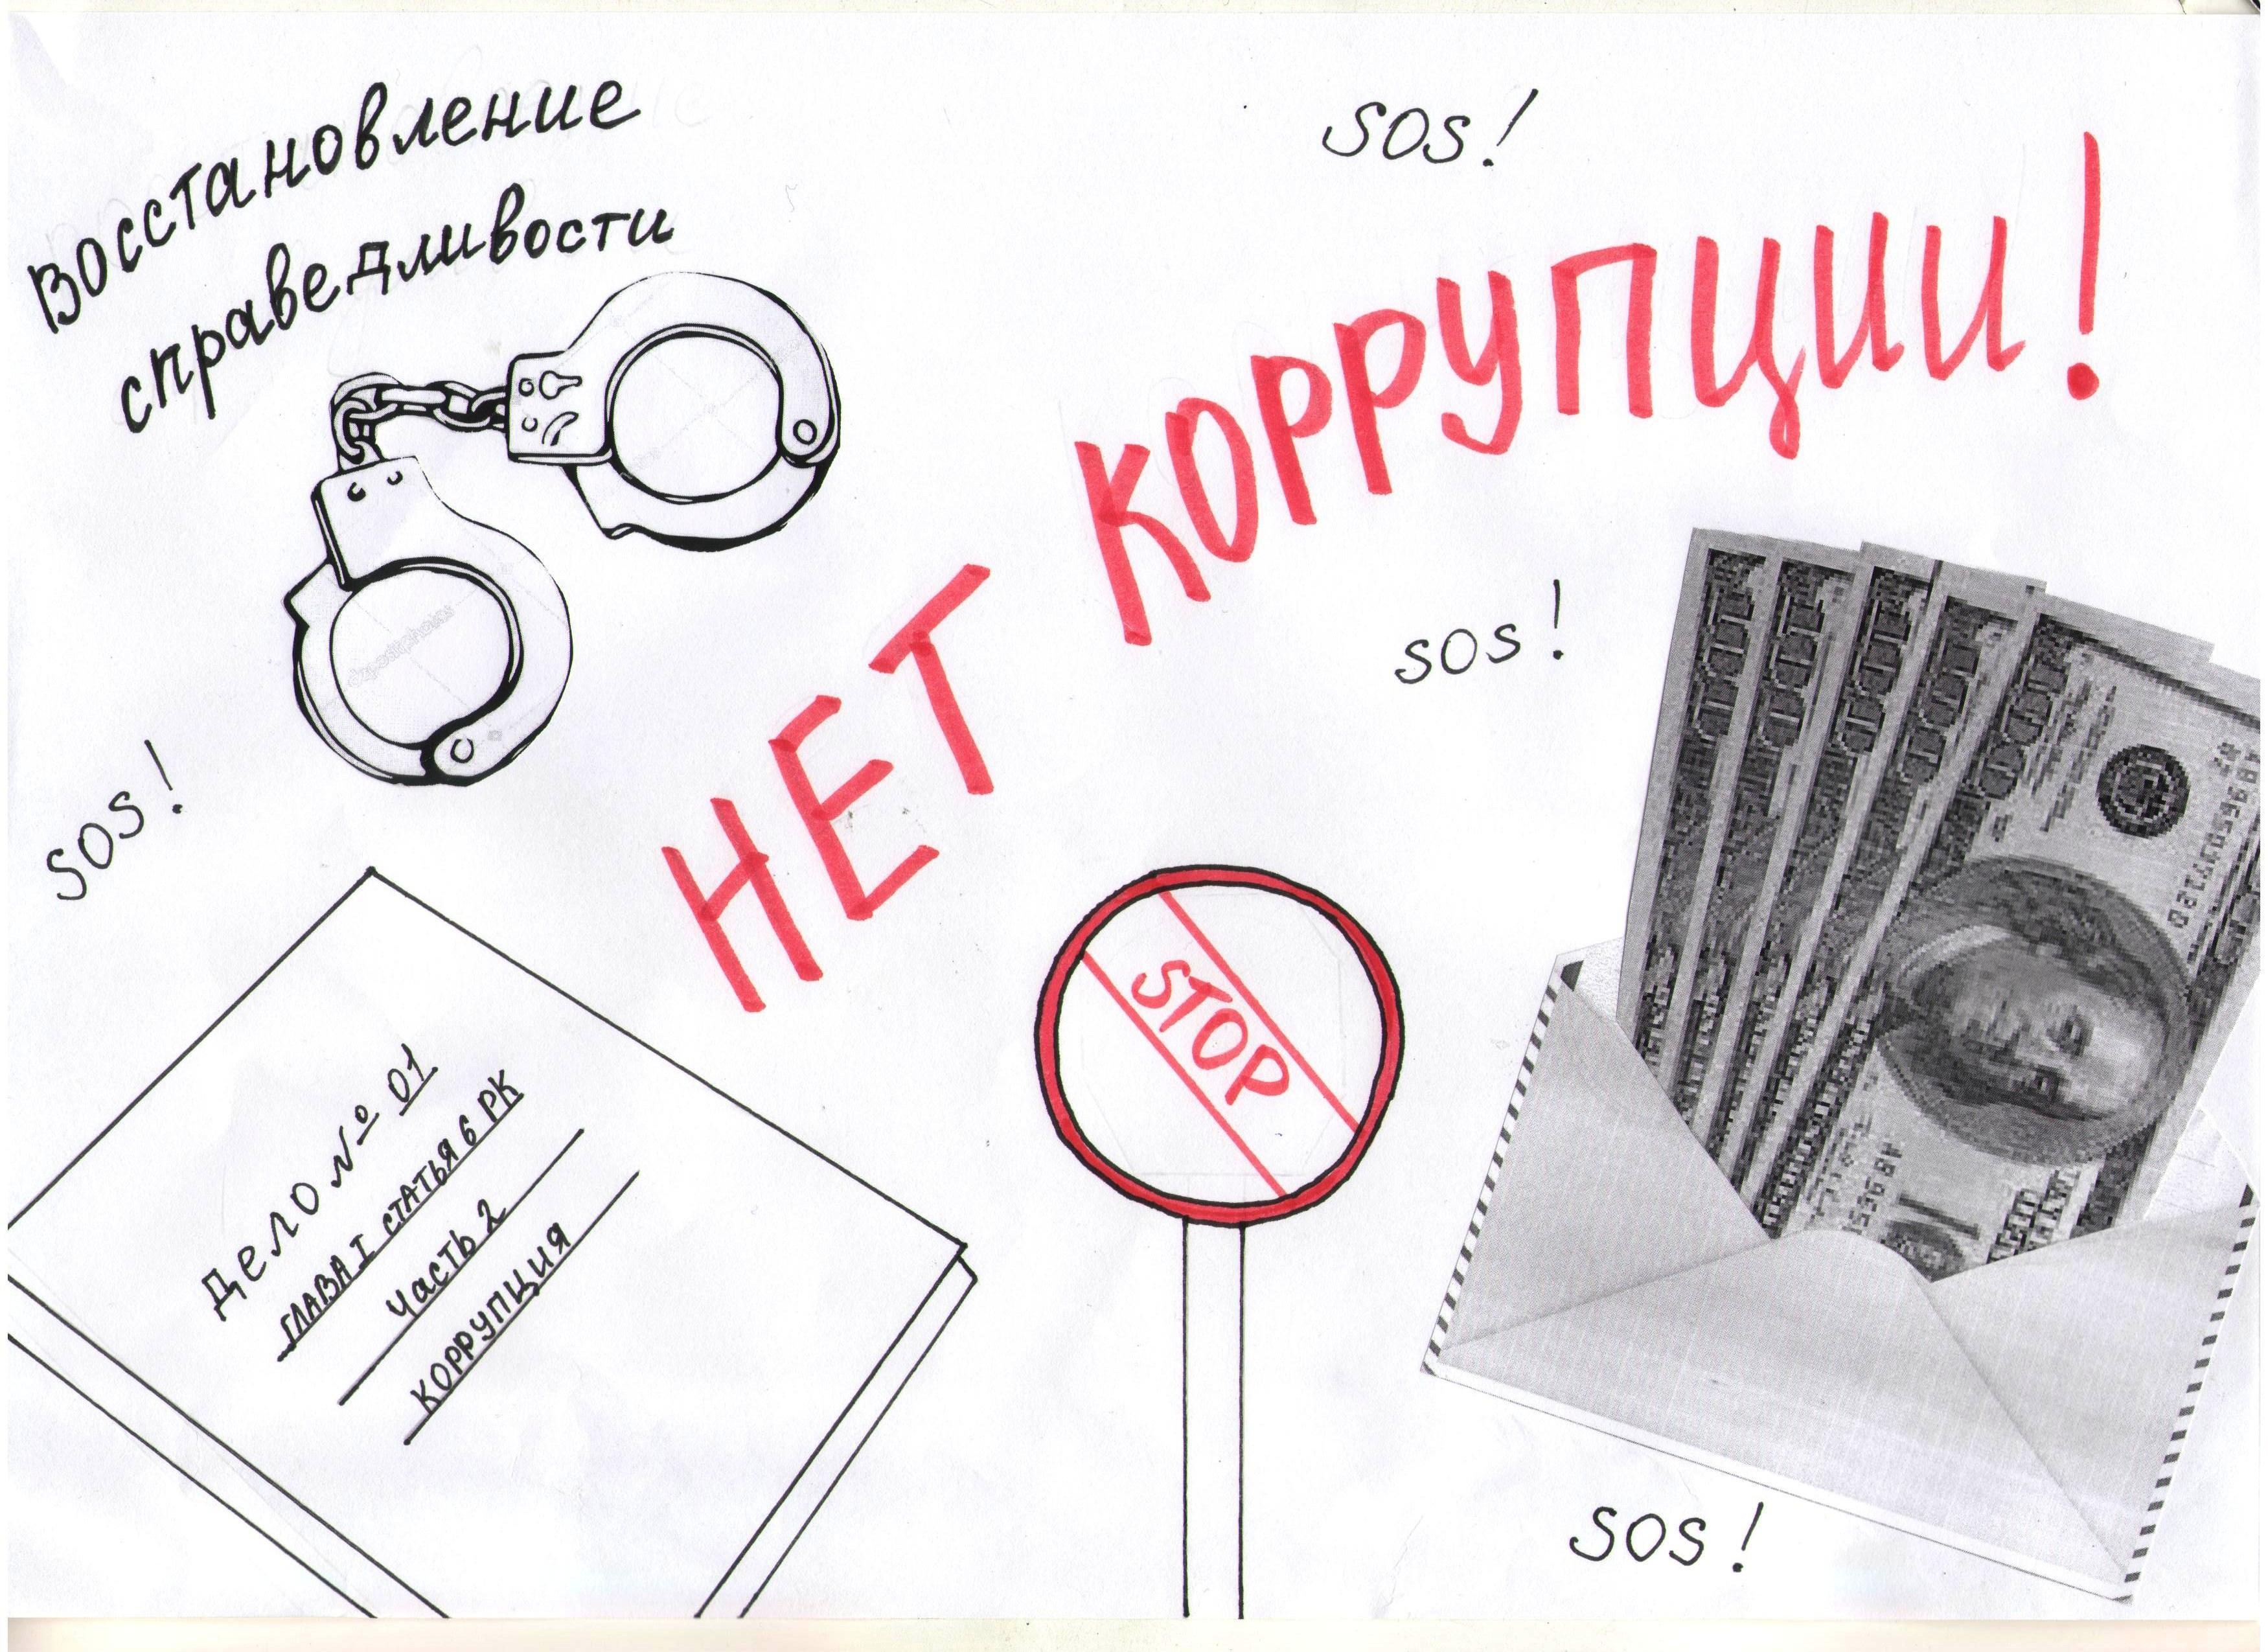 Восстановление
справедливости
SOS!
НЕТ КОРРУПЦИИ!
SOS!
SOS!
STOP
Дело № 01
ГЛАВА I СТАТЬЯ 6 РК
Часть 2
КОРРУПЦИЯ
SOS!